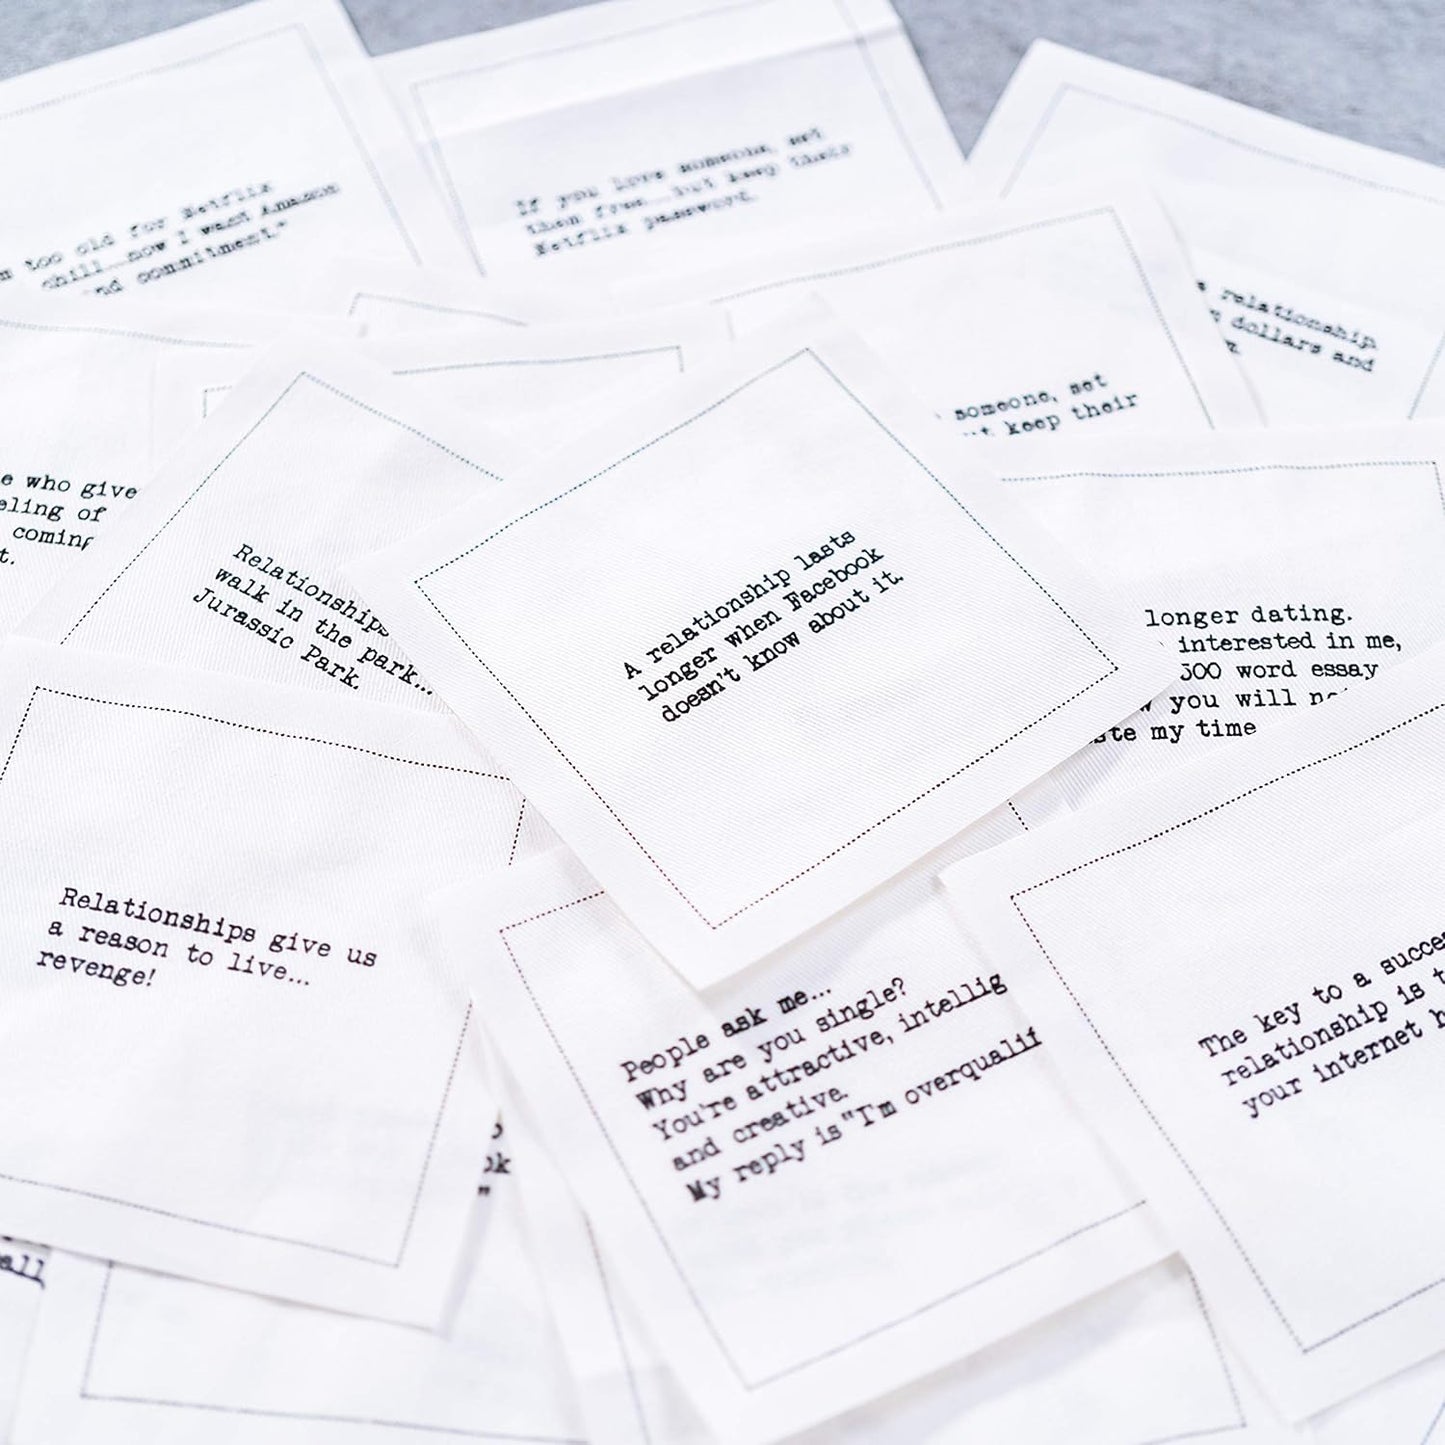 too old for Netflix
chill...now I want Amazon
commitment."
If you love someone, set
them free...but keep their
Netflix password.
relationship
dollars and
someone, set
keep their
who give
of
coming
Relationships
walk in the park...
Jurassic Park.
A relationship lasts
longer when Facebook
doesn't know about it.
longer dating.
interested in me,
500 word essay
you will
my time
Relationships give us
a reason to live...
revenge!
People ask me...
Why are you single?
You're attractive,
and creative.
My reply is "I'm
The key to a
relationship is
your internet